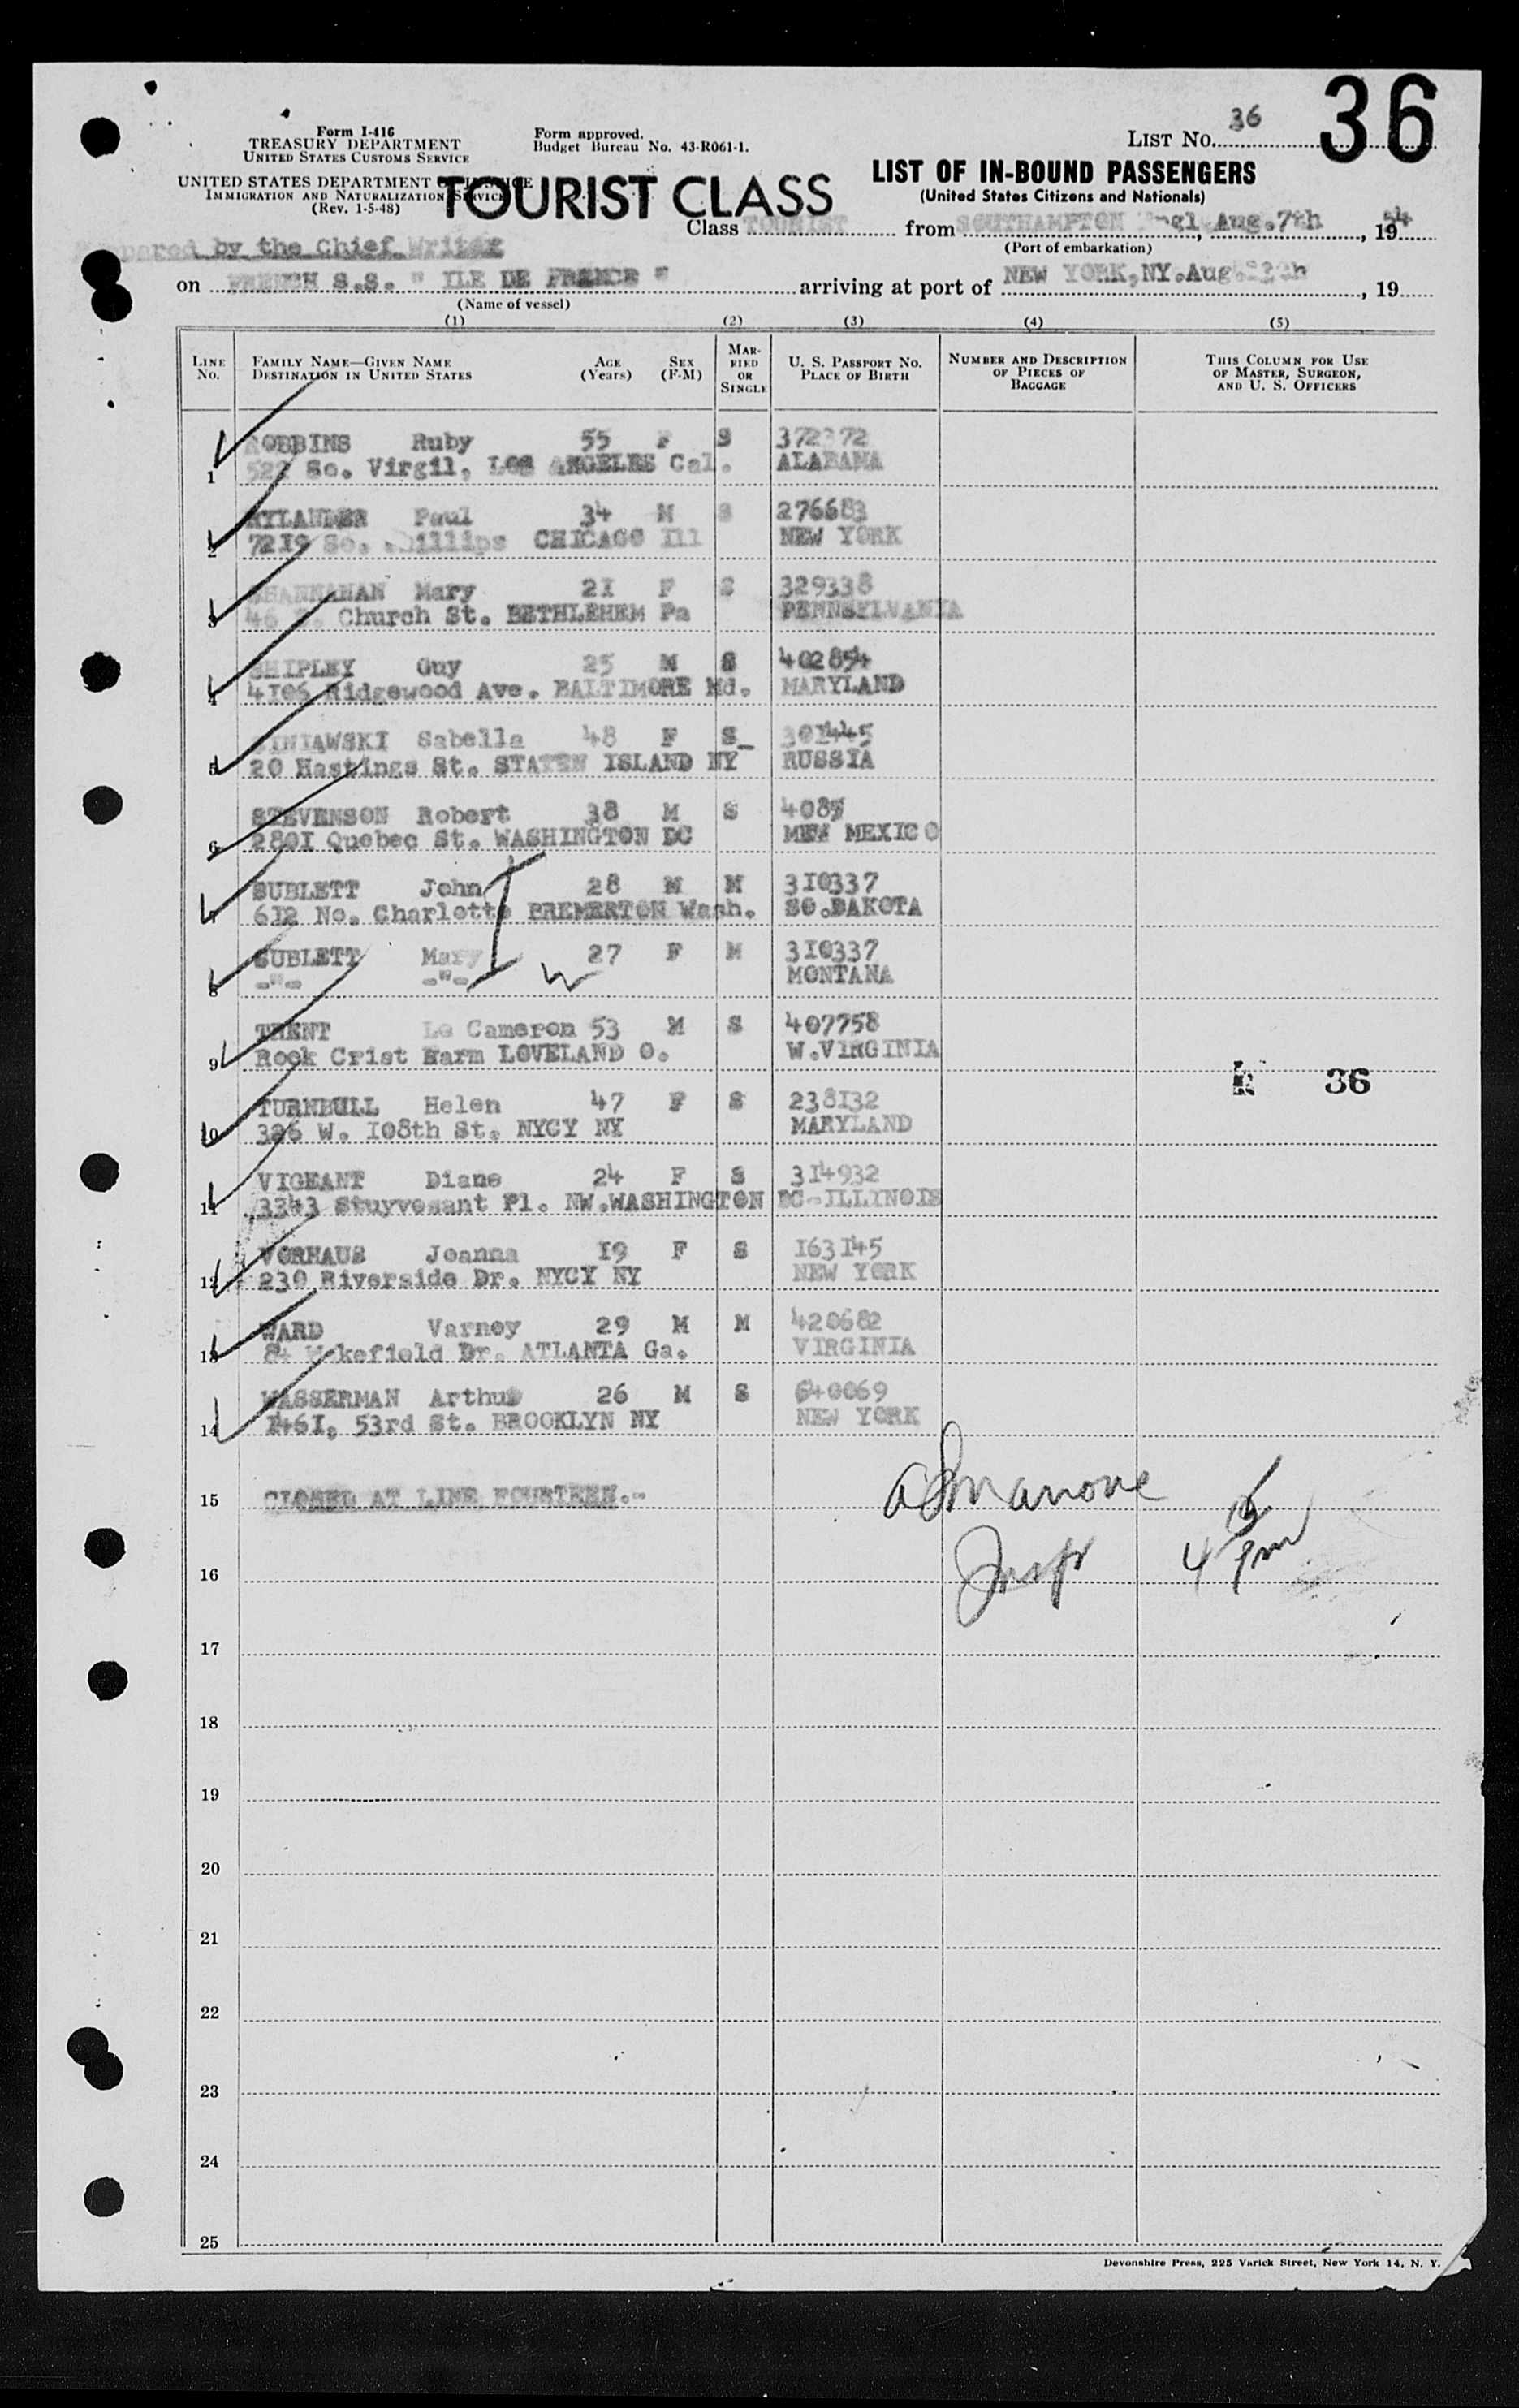 36
Form I-416
TREASURY DEPARTMENT
UNITED STATES CUSTOMS SERVICE
Form approved.
Budget Bureau No. 43-R061-1.
LIST No. 36
UNITED STATES DEPARTMENT
IMMIGRATION AND NATURALIZATION SERVICE
(Rev. 1-5-48)
TOURIST CLASS
LIST OF IN-BOUND PASSENGERS
(United States Citizens and Nationals)
Class TOURIST from SOUTHAMPTON Aug.7th, 1954
(Port of embarkation)
by the Chief Writer
on FRENCH S.S. " ILE DE FRANCE " arriving at port of NEW YORK,NY.Aug , 19
(Name of vessel)
(1) (2) (3) (4) (5)
LINE No. FAMILY NAME—GIVEN NAME DESTINATION IN UNITED STATES AGE (Years) SEX (F-M) MARRIED OR SINGLE U. S. PASSPORT No. PLACE OF BIRTH NUMBER AND DESCRIPTION OF PIECES OF BAGGAGE THIS COLUMN FOR USE OF MASTER, SURGEON, AND U. S. OFFICERS
ROBBINS Ruby 55 F S 372372
1 522 So. Virgil, LOS ANGELES Cal. ALABAMA
RYLANDER Paul 34 M S 276683
2 7219 So. CHICAGO Ill NEW YORK
SHANNAHAN Mary 21 F S 329338
3 46 Church St. BETHLEHEM Pa PENNSELVANIA
SHIPLEY Guy 25 M S 402854
4 4106 Ridgewood Ave. BALTIMORE Md. MARYLAND
SINIAWSKI Sabella 48 F S 301445
5 20 Hastings St. STATEN ISLAND NY RUSSIA
STEVENSON Robert 38 M S 4085
6 2801 Quebec St. WASHINGTON DC NEW MEXICO
SUBLETT John 28 M M 310337
7 612 No. Charlotte BREMERTON Wash. SO.DAKOTA
SUBLETT Mary 27 F M 310337
8 -"- -"- MONTANA
TRENT Le Cameron 53 M S 407758
9 Rock Crist Harm LOVELAND O. W.VIRGINIA
36
TURNBULL Helen 47 F S 238132
10 326 W. 108th St. NYCY NY MARYLAND
VIGEANT Diane 24 F S 314932
11 3343 Stuyvesant Pl. NW.WASHINGTON DC-ILLINOIS
VORHAUS Joanna 19 F S 163145
12 230 Riverside Dr. NYCY NY NEW YORK
WARD Varney 29 M M 420682
13 84 Wakefield Dr. ATLANTA Ga. VIRGINIA
WASSERMAN Arthur 26 M S 640069
14 1461, 53rd St. BROOKLYN NY NEW YORK
15 CLOSED AT LINE FOURTEEN.-
Inspr 4 15 pm
16
17
18
19
20
21
22
23
24
25
Devonshire Press, 225 Varick Street, New York 14, N. Y.